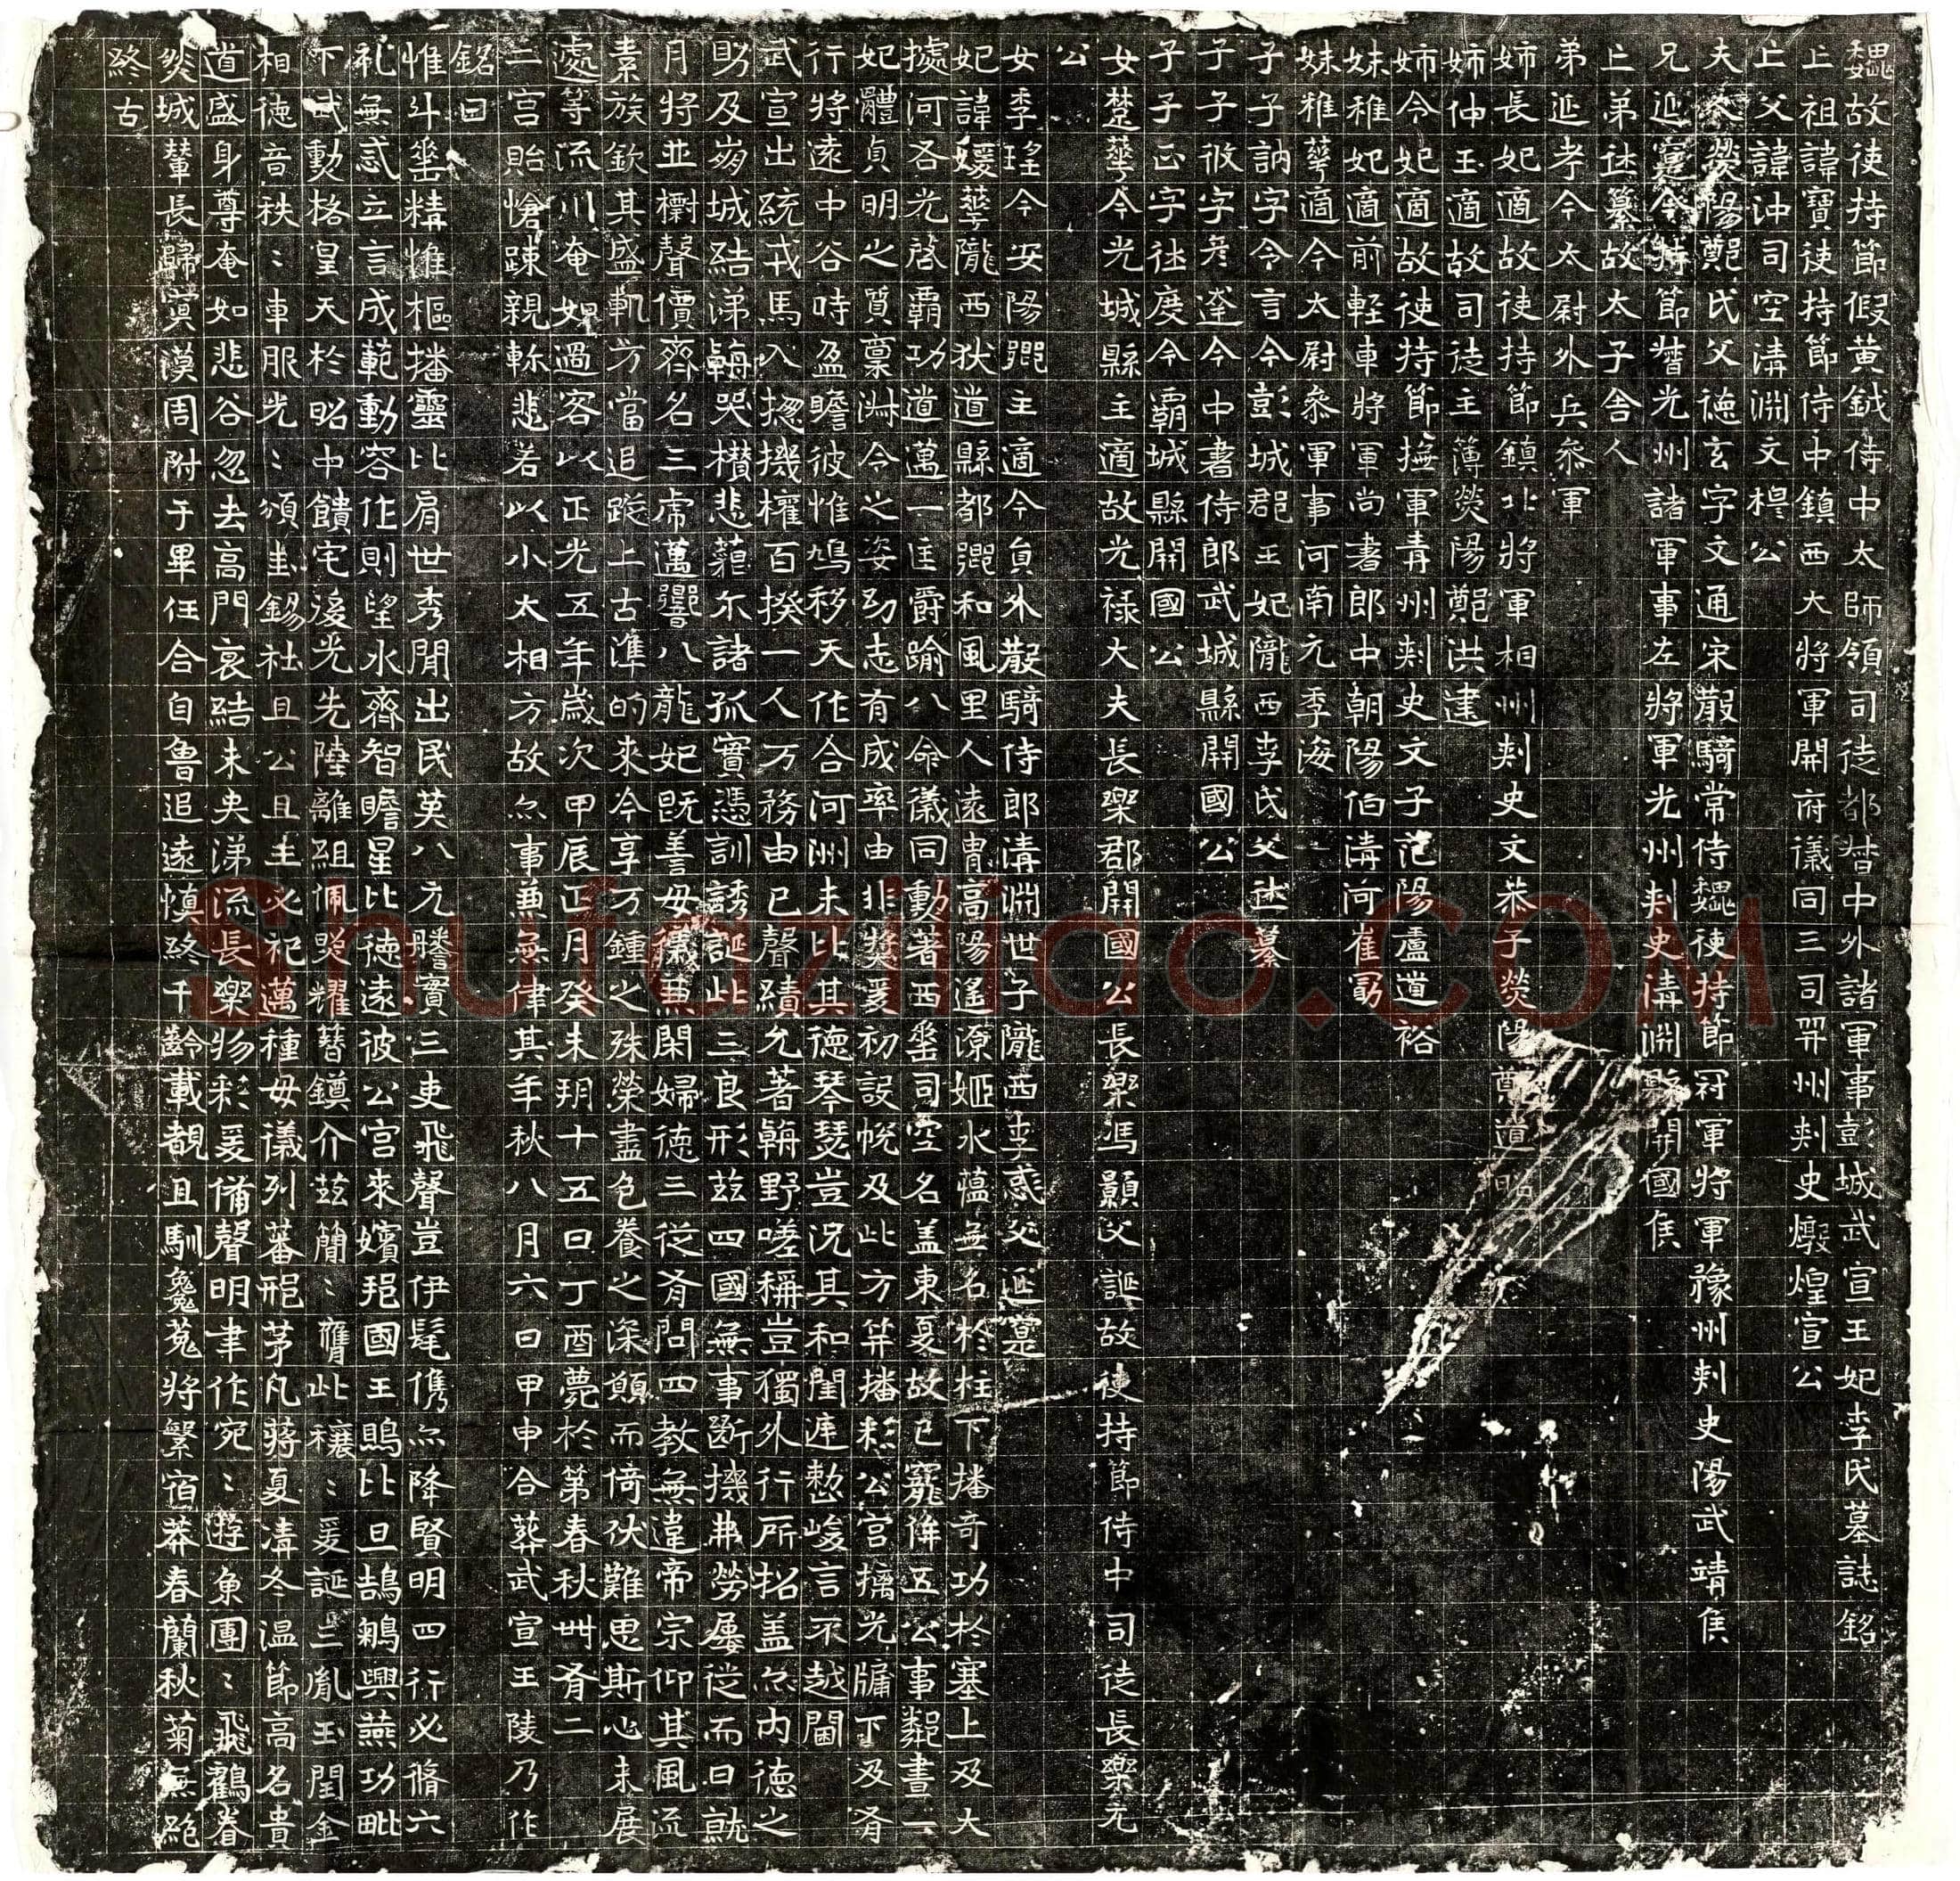 魏故使持節假黄鉞侍中太師領司徒都督中外諸軍事彭城武宣王妃李氏墓誌銘
亡祖諱寶使持節侍中鎮西大將軍開府儀同三司并州刺史燉煌宣公
亡父諱沖司空清淵文穆公
夫人滎陽鄭氏父德玄字文通宋散騎常侍魏使持節冠軍將軍豫州刺史陽武靖侯
兄延寔今持節督光州諸軍事左將軍光州刺史清淵縣開國侯
亡弟休纂故太子舍人
弟延孝今太尉外兵參軍
姉長妃適故使持節鎮北將軍相州刺史文恭子滎陽鄭道昭
姉仲玉適故司徒主簿滎陽鄭洪建
姉令妃適故使持節撫軍青州刺史文子范陽盧道裕
妹稚妃適前輕車將軍尚書郎中朝陽伯清河崔勗
妹稚華適今太尉參軍事河南元季海
子子訥字令言今彭城郡王妃隴西李氏父休纂
子子攸字彦達今中書侍郎武城縣開國公
子子正字休度今霸城縣開國公
女楚華今光城縣主適故光禄大夫長樂郡開國公長樂馮顥父誕故使持節侍中司徒長樂元
公
女季瑶今安陽鄉主適今員外散騎侍郎清淵世子隴西李彧父延寔
妃諱媛華隴西狄道縣都鄉和風里人遠胄高陽遥源姬水藴無名於柱下播奇功於塞上及大
據河右光啓霸功道邁一匡爵踰八命儀同勳著西垂司空名盖東夏故已窺侔五公事鄰晝一
妃體貞明之質稟淋令之姿幼志有成率由非奬爰初設帨及此方笄播彩公宫摛光牖下及脊
行將遠中谷時盈瞻彼惟鳩移天作合河洲未比其德琴瑟豈況其和閨庭愸峻言不越閫
武宣出統戎馬入揔機權百揆一人万務由已聲績允著朝野嗟稱豈獨外行所招盖亦内德之
助及崩城結涕輤哭欑悲藐尒諸孤實憑訓誘誕此三良形兹四國無事斷機弗勞屢從而日就
月將並欝聲價齊名三虎邁響八龍妃既善母儀兼閑婦德三從脊問四教無違帝宗仰其風流
素族欽其盛軌方當追蹤上古準的來今享万鍾之殊榮盡色養之深願而倚伏難思斯心未展
處等流川奄如過客以正光五年歲次甲辰正月癸未玥十五日丁酉薨於第春秋卌脊二
二宫貽愴踈親軫悲若以小太相方故亦事兼無律其年秋八月六日甲申合葬武宣王陵乃作
銘曰
惟斗垂精惟樞播靈比肩世秀閒出民英八元騰實三吏飛聲豈伊髦儁亦降賢明四行必脩六
礼無忒立言成範動容作則望水齊智瞻星比德遠彼公宫來嬪邦國王鵙比旦鵠鶵興燕功毗
下武動格皇天於昭中饋宅後光先陸離組佩照耀簪鎮介兹簡〻膺此穰〻爰誕三胤玉閏金
相德音秩〻車服光〻頒圭錫社且公且王必祀邁種母儀列蕃邢茅凡蔣夏凊冬温節高名貴
道盛身尊奄如悲谷忽去高門哀結未央涕流長樂物彩爰備聲明聿作宛〻遊魚團〻飛鶴眷
然城輦長歸㝠漠周附于畢任合自魯追遠慎終千齡載覩且馴毚菟將繁宿莽春蘭秋菊無絶
終古
Shufaziliao.COM